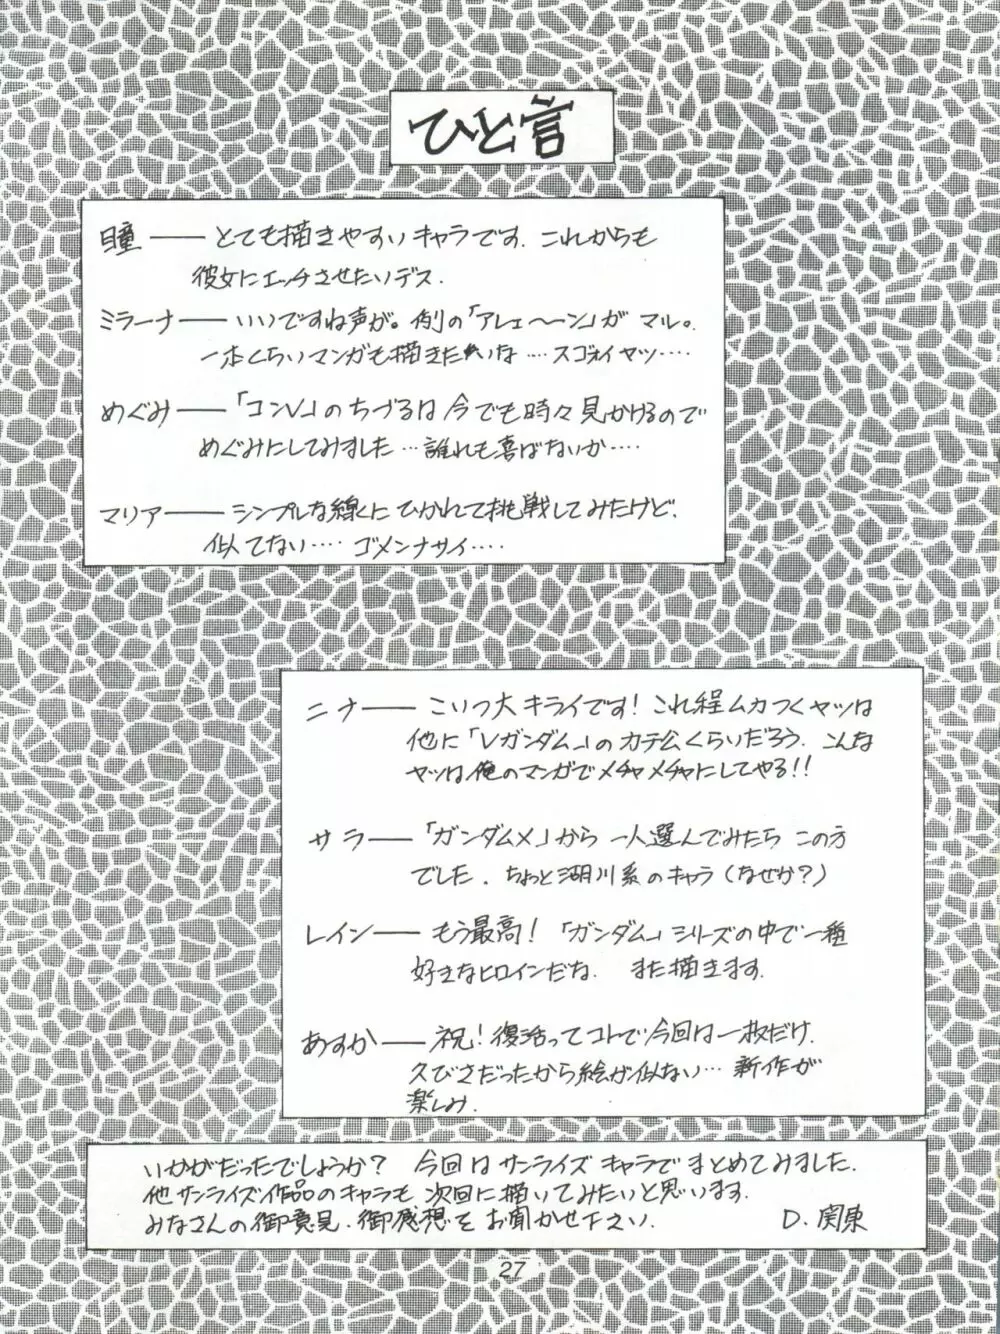 ひと言
瞳――とても描きやすいキャラです.これからも
彼女にエッチさせたいデス.
ミラーナ――いいですね声が。例の「アレェ～～ン」がマル。
一本くらいマンガも描きたいな……スゴォイヤツ……
めぐみ――「コンV」のちづるは今でも時々見かけるので
めぐみにしてみました…誰れも喜ばないか……
マリア――シンプルな線にひかれて挑戦してみたけど、
似てない……ゴメンナサイ……
ニナ――こいつ大キライです!これ程ムカつくヤツは
他に「Vガンダム」のカテ公くらいだろう.こんな
ヤツは俺のマンガでメチャメチャにしてやる!!
サラ――「ガンダムX」から一人選んでみたら この方
でした.ちょっと湖川系のキャラ(なぜか?)
レイン――もう最高!「ガンダム」シリーズの中で一種
好きなヒロインだな. また描きます.
あすか――祝!復活ってコトで今回は一枚だけ.
久びさだったから絵が似ない…新作が
楽しみ.
いかがだったでしょうか? 今回はサンライズキャラでまとめてみました.
他サンライズ作品のキャラも次回に描いてみたいと思います.
みなさんの御意見.御感想をお聞かせ下さい. D.関東
27